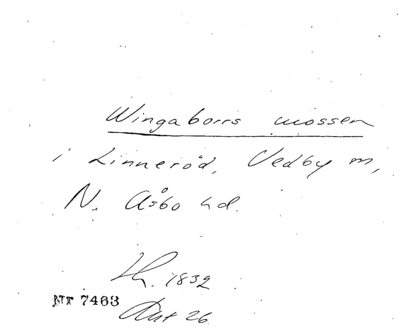 Wingaborrs mossen
i Linneröd, Vedby m,
N. Åsbo hd.
1832
Nr 7463
Akt 26